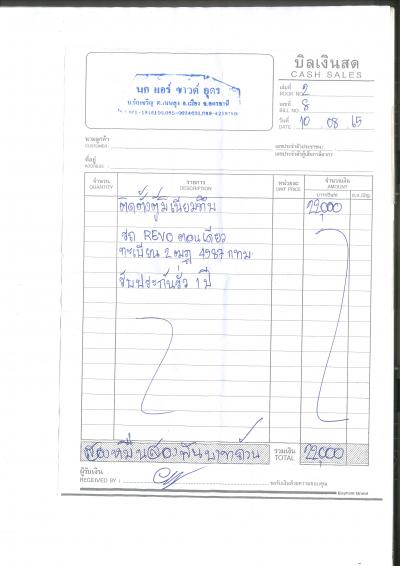 บิลเงินสด
CASH SALES
นก แอร์ ซาวด์ อุดร
เล่มที่ 2
BOOK NO.
เลขที่ 8
BILL NO.
วันที่ 10 08 65
DATE
นามลูกค้า
CUSTOMER
เลขประจำตัวประชาชน/
เลขประจำตัวผู้เสียภาษีอากร
ที่อยู่
ADDRESS
จำนวน รายการ หน่วยละ จำนวนเงิน
QUANTITY DESCRIPTION UNIT PRICE AMOUNT
ติดตั้งตู้มิเนียมทึบ 22,000
รถ REVO ตอนเดียว
ทะเบียน 2ฒฎ 4987 กทม.
รับประกันรั่ว 1 ปี
สองหมื่นสองพันบาทถ้วน รวมเงิน 22,000
TOTAL
ผู้รับเงิน
RECEIVED BY
ขอรับเงินด้วยความขอบคุณ
Elephant Brand